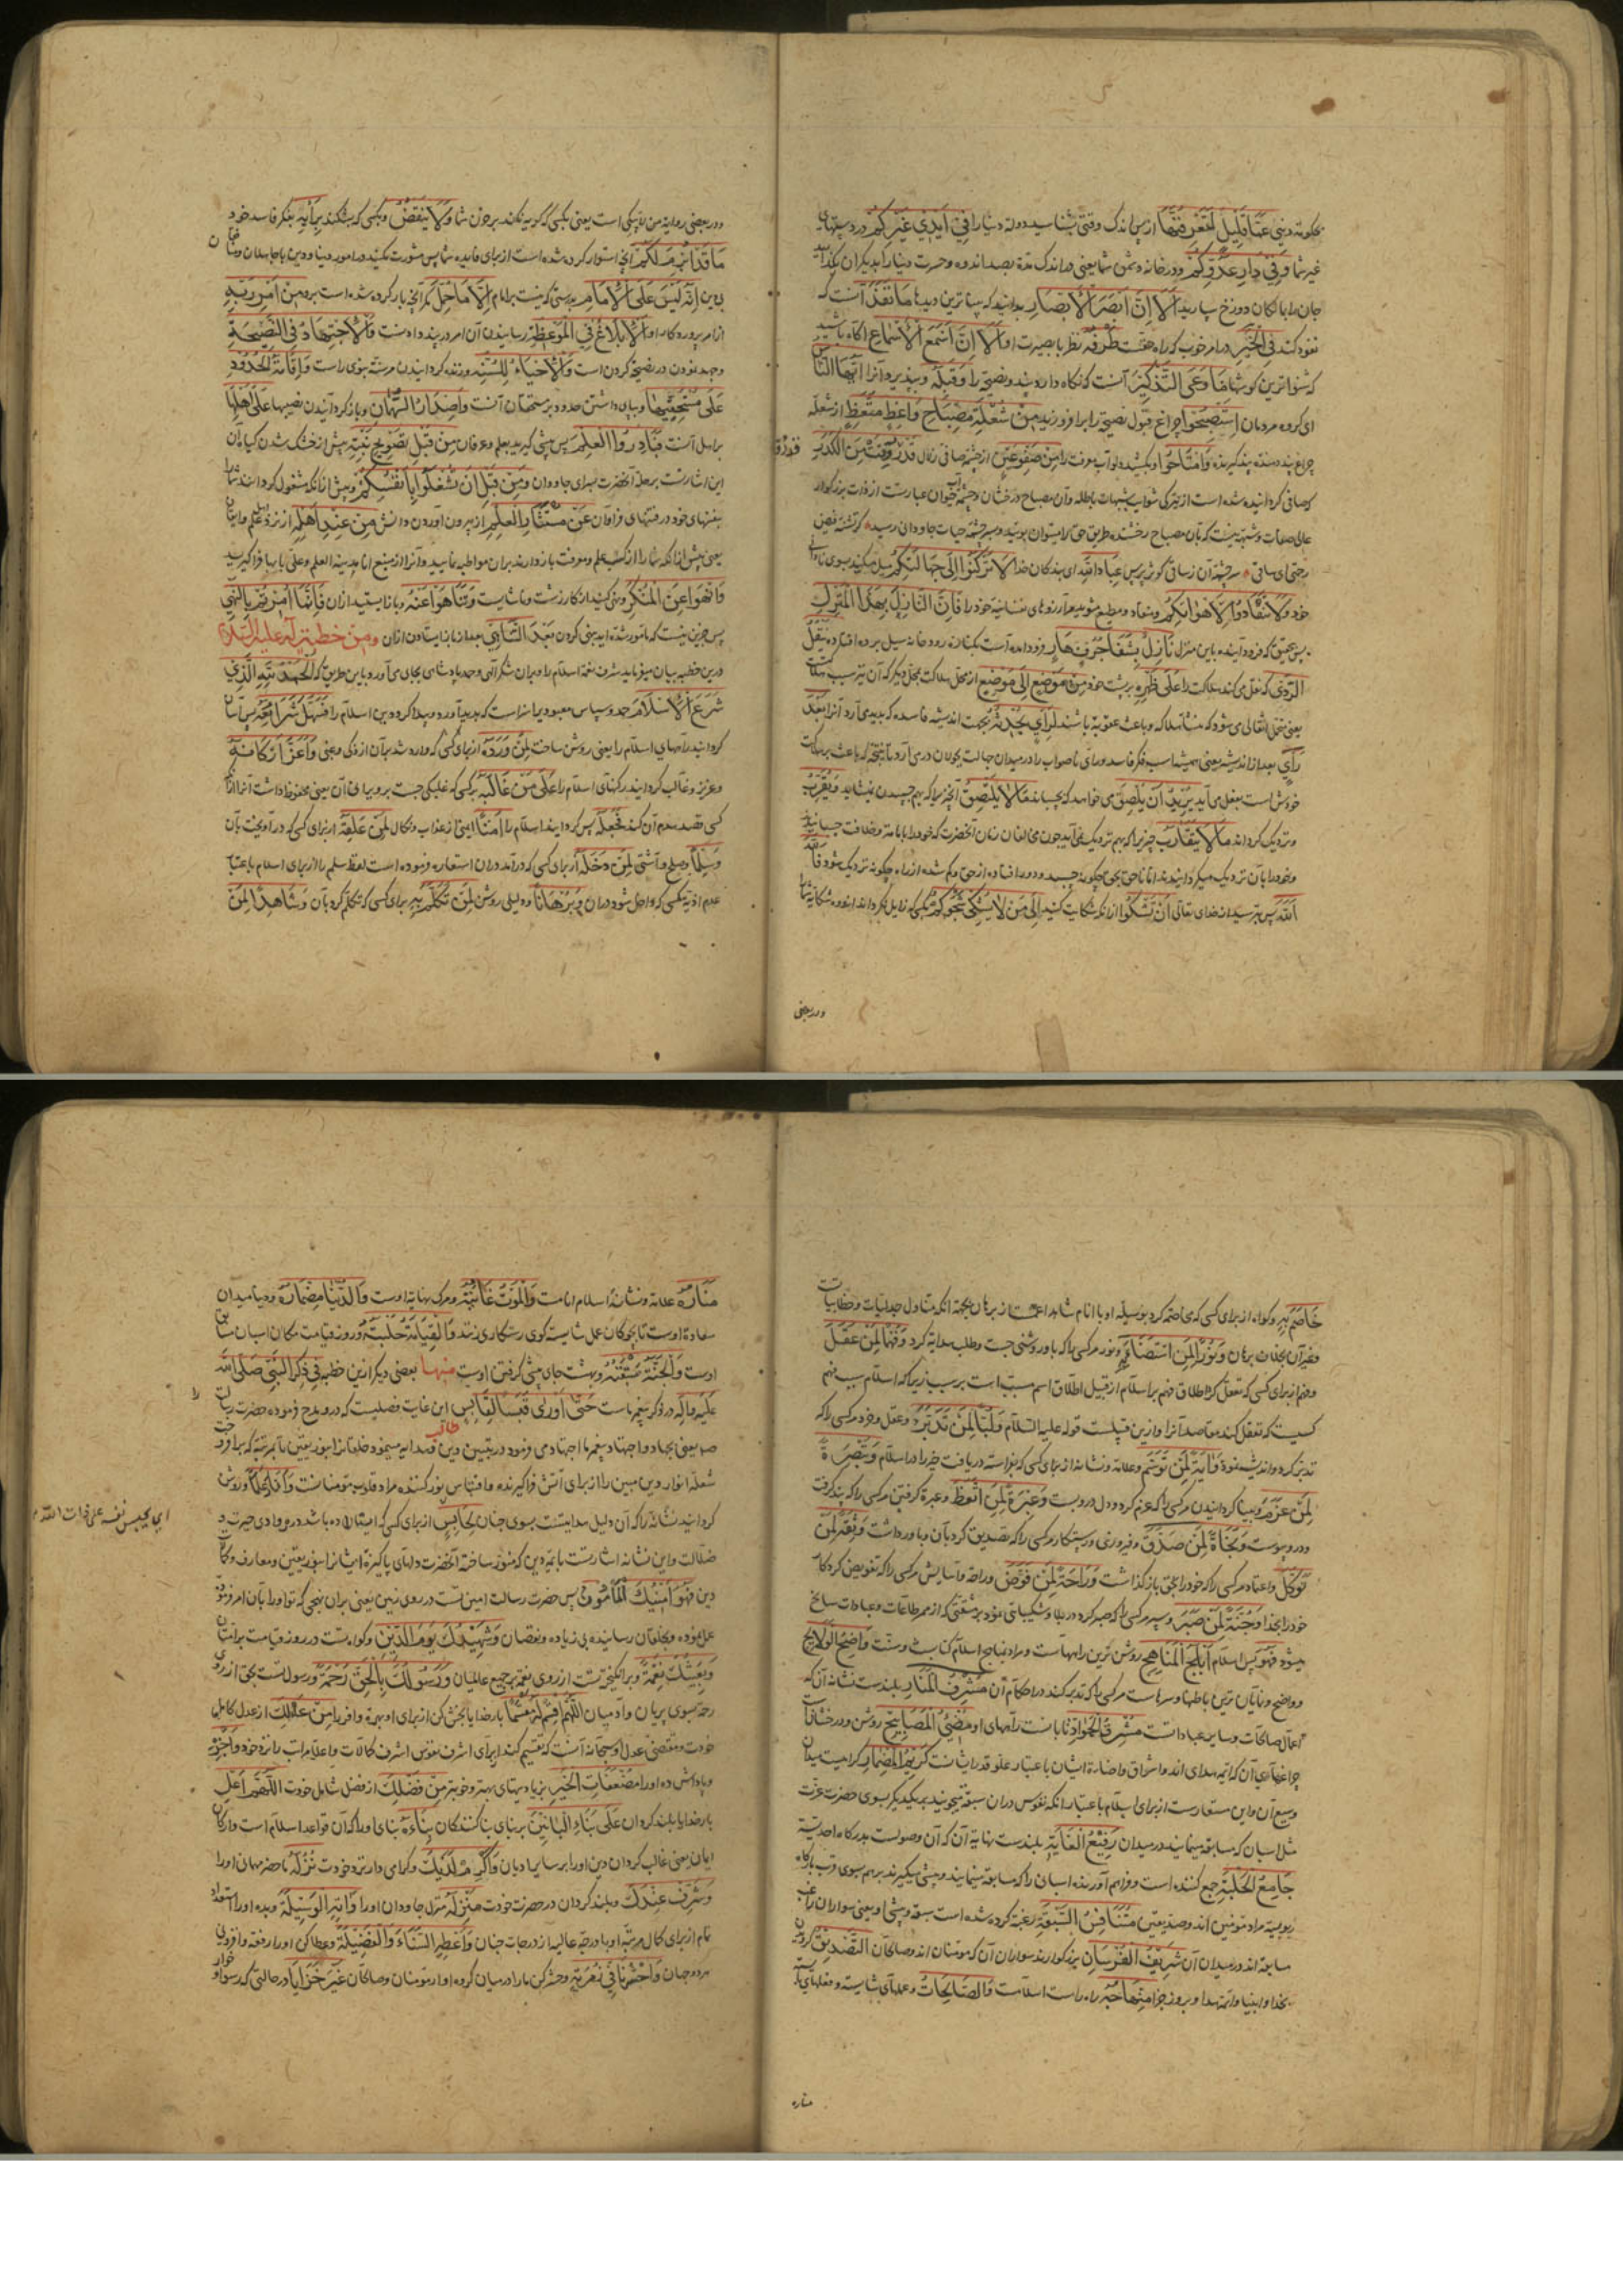 بچگونه و نبی عَمَّا قَلِيلٍ لَتَعْرِفُنَّهَا از پس اندک وقتی بشناسید دولة دنیا را فِي أَيْدِي غَيْرِكُمْ در دستهای
غیر شما وَفِي دَارِ عَدُوِّكُمْ و در خانه دشمن شما یعنی در اندک مدة بصد اندوه و حسرت دنیا را بدیگران بگذارید
جان را بمالکان دوزخ بسپارید أَلَا إِنَّ أَبْصَرَ الْأَبْصَارِ بدانید که بیناترین دیدها مَا نَفَذَ آنست که
نفوذ کند فِي الْخَيْرِ در امر خوب که راه حقست طَرْفُهُ نظر با بصیرت او أَلَا إِنَّ أَسْمَعَ الْأَسْمَاعِ آگاه باشید
که شنواترین گوشها مَا وَعَى التَّذْكِيرَ آنست که نگاه دارد پند و نصیحة را وَقَبِلَهُ و بپذیرد آنرا أَيُّهَا النَّاسُ
ای گروه مردمان اسْتَصْبِحُوا چراغ قبول نصیحة را برافروزید مِنْ شُعْلَةِ مِصْبَاحِ وَاعِظٍ مُتَّعِظٍ از شعلهٔ
چراغ پند دهندهٔ پند گیرنده وَامْتَاحُوا و بکشید دلو آب معرفت را مِنْ صَفْوِ عَيْنٍ از چشمهٔ صافی زلال قَدْ رُوِّقَتْ مِنَ الْكَدَرِ
که صافی گردانیده شده است از تیرگی شوایب شبهات باطله و آن مصباح درخشان و چشمهٔ حیوان عبارتست از ذات بزرگوار
عالی صفات و شبهه نیست که بآن مصباح رخشنده طریق حق را میتوان پویید و بسر چشمهٔ حیات جاودانی رسید گر تشنهٔ فیض
رحقی ای ساقی سرچشمهٔ آن ز ساقی کوثر پرس عِبَادَ اللَّهِ ای بندگان خدا لَا تَرْكَنُوا إِلَى جَهَالَتِكُمْ میل مکنید بسوی نادانی
خود وَلَا تَنْقَادُوا لِأَهْوَائِكُمْ و منقاد و مطیع مشوید مر آرزوهای نفسانیهٔ خود را فَإِنَّ النَّازِلَ بِهَذَا الْمَنْزِلِ
پس بتحقیق که فرود آینده باین منزل نَازِلٌ بِشَفَا جُرُفٍ هَارٍ فرود آمده است بکنارهٔ رودخانه سیل برده افتاده يَنْقُلُ
الرَّدَى که نقل می کند هلاکت را عَلَى ظَهْرِهِ بر پشت خود مِنْ مَوْضِعٍ إِلَى مَوْضِعٍ از محل هلاکت بمحل دیگر که آن نیز سبب هلاکتست
یعنی متحمل اثقالی می شود که منشأ هلاکه و باعث عقوبة باشند لِرَأْيٍ يُحْدِثُهُ بجهت اندیشه فاسده که پدید می آرد آنرا بَعْدَ
رَأْيٍ بعد از اندیشه یعنی همیشه اسب فکر فاسد و رای ناصواب را در میدان جهالت بجولان درمی آرد تا نتیجه که باعث بر هلاکت
خودش است بفعل می آید يُرِيدُ أَنْ يُلْصِقَ می خواهد که بچسباند مَا لَا يَلْتَصِقُ آنچیز را که بهم چسبیدن نمیشاید وَيُقَرِّبَ
و نزدیک گرداند مَا لَا يَتَقَارَبُ چیزیرا که بهم نزدیک نمی آید چون مخالفان زمان آنحضرت که خود را بامامة و خلافت چسبانیدند
و خود را بآن نزدیک میگردانیدند اما ناحق بحق چگونه چسبد و دور افتاده از حق و گم شده از راه چگونه نزدیک شود فَاللَّهَ
اللَّهَ پس بترسید از خدای تعالی أَنْ تَشْكُوا از انکه شکایت کنید إِلَى مَنْ لَا يُشْكِي شَجْوَكُمْ بکسی که زایل نگرداند اندوه شکایة شما
در بعضی
و در بعضی روایة من لا یبکی است یعنی بکسی که گریه نکند بر حزن شما وَلَا يَنْقُضُ و بکسی که بشکند بِرَأْيِهِ بفکر فاسد خود
مَا قَدْ أَبْرَمَ لَكُمْ آنچه استوار کرده شده است از برای فایده شما پس مشورت مکنید در امور دنیا و دین با جاهلان
بی دین إِنَّهُ لَيْسَ عَلَى الْإِمَامِ بدرستی که نیست بر امام إِلَّا مَا حُمِّلَ مگر آنچه بار کرده شده است برو مِنْ أَمْرِ رَبِّهِ
از امر پروردگار او الْإِبْلَاغُ فِي الْمَوْعِظَةِ رسانیدن آن امر در پند دادنست وَالِاجْتِهَادُ فِي النَّصِيحَةِ
و جهد نمودن در نصیحة کردن است وَالْإِحْيَاءُ لِلسُّنَّةِ و زنده گردانیدن مر سنة نبوی راست وَإِقَامَةُ الْحُدُودِ
عَلَى مُسْتَحِقِّيهَا و بپای داشتن حدود بر مستحقان آنست وَإِصْدَارُ السُّهْمَانِ و باز گردانیدن نصیبها عَلَى أَهْلِهَا
بر اهل آنست فَبَادِرُوا الْعِلْمَ پس پیشی گیرید بعلم و عرفان مِنْ قَبْلِ تَصْوِيحِ نَبْتِهِ پیش از خشک شدن گیاه آن
این اشارتست برحلة آنحضرت بسرای جاودان وَمِنْ قَبْلِ أَنْ تُشْغَلُوا بِأَنْفُسِكُمْ و پیش از آنکه مشغول گردانند شما را
بنفسهای خود در فتنهای فراوان عَنْ مُسْتَثَارِ الْعِلْمِ از بیرون آوردن دانش مِنْ عِنْدِ أَهْلِهِ از نزد اهل علم و ایقان
یعنی پیش از آنکه شما را از کسب علم و معرفت باز دارند بران مواظبه نمایید و آنرا از منبع انا مدینة العلم و علی بابها فرا گیرید
وَانْهَوْا عَنِ الْمُنْكَرِ و نهی کنید از کار زشت و ناشایست وَتَنَاهَوْا عَنْهُ و باز ایستید از ان فَإِنَّمَا أُمِرْتُمْ بِالنَّهْيِ
پس جز این نیست که مأمور شده اید بنهی کردن بَعْدَ التَّنَاهِي بعد از باز ایستادن از ان ومن خطبة له علیه السلام
درین خطبه بیان میفرماید شرف نعمة اسلام را و بران شکر الهی و حمد پادشاهی بجای می آورد باین طریق که الْحَمْدُ لِلَّهِ الَّذِي
شَرَعَ الْإِسْلَامَ حمد و سپاس معبودیرا سزاست که پدید آورد و پیدا کرد دین اسلام را فَسَهَّلَ شَرَائِعَهُ پس آسان
گردانید راههای اسلام را یعنی روشن ساخت لِمَنْ وَرَدَهُ از برای کسی که وارد شد بر آن از ذکی و غبی وَأَعَزَّ أَرْكَانَهُ
و عزیز و غالب گردانید رکنهای اسلام را عَلَى مَنْ غَالَبَهُ بر کسی که غلبگی جست برو برای آن یعنی محفوظ داشت آنرا از آنکه
کسی قصد هدم آن کند فَجَعَلَهُ پس گردانید اسلام را أَمْنًا ایمنی از عذاب و نکال لِمَنْ عَلِقَهُ از برای کسی که در آویخت بآن
وَسِلْمًا و صلح و آشتی لِمَنْ دَخَلَهُ از برای کسی که درآمد در ان استعاره فرموده است لفظ سلم را از برای اسلام باعتبار
عدم اذیة بکسی که داخل شود در ان وَبُرْهَانًا و دلیلی روشن لِمَنْ تَكَلَّمَ بِهِ برای کسی که تکلم کرد بآن وَشَاهِدًا لِمَنْ
خَاصَمَ بِهِ و گواه از برای کسی که مخاصمه کرد بوسیلهٔ او با انام شاهد اعمست از برهان بجهة آنکه متناول جدلیات و خطابیات
و غیر آن بخلاف برهان وَنُورًا لِمَنِ اسْتَضَاءَ بِهِ و نور مر کسی را که باو روشنی جست و طلب هدایة کرد وَفَهْمًا لِمَنْ عَقَلَ
و فهم از برای کسی که تعقل کرد اطلاق فهم بر اسلام از قبیل اطلاق اسم مسبب است بر سبب زیرا که اسلام سبب فهم
کسیست که تعقل کند مقاصد آنرا و ازین قبیلست قوله علیه السلام وَلُبًّا لِمَنْ تَدَبَّرَ و عقل و خرد مر کسی را که
تدبر کرد و اندیشه نمود وَآيَةً لِمَنْ تَوَسَّمَ و علامة و نشانه از برای کسی که بفراسة دریافت خیر را در اسلام وَتَبْصِرَةً
لِمَنْ عَزَمَ و بینا گردانیدن مر کسی را که عزم کرد و دل درو بست وَعِبْرَةً لِمَنِ اتَّعَظَ و عبرة گرفتن مر کسی را که پند گرفت
درو پیوست وَنَجَاةً لِمَنْ صَدَّقَ و فیروزی و رستگار مر کسی را که تصدیق کرد بآن و باور داشت وَثِقَةً لِمَنْ
تَوَكَّلَ و اعتماد مر کسی را که خود را بحق باز گذاشت وَرَاحَةً لِمَنْ فَوَّضَ و راحة و آسایش مر کسی را که تفویض کرد کار
خود را بخدا وَجُنَّةً لِمَنْ صَبَرَ و سپر مر کسی را که صبر کرد در بلا و شکیبایی نمود بر مشقتی که از ممر طاعات و عبادات سانح
میشود فَهُوَ پس اسلام أَبْلَجُ الْمَنَاهِجِ روشن ترین راههاست و مراد بمناهج اسلام کتابست و سنت وَاضِحُ الْوَلَائِجِ
و واضح و نمایان ترین باطنها و سرهاست مر کسی را که تدبر کند در احکام آن مُشْرِفُ الْمَنَارِ بلندست نشانهٔ آن که
اعمال صالحات و سایر عباداتست مُشْرِقُ الْجَوَادِّ تابانست راههای او مُضِيءُ الْمَصَابِيحِ روشن و درخشانست
چراغهای آن که ائمهٔ هدی اند و اشراق و اضاءة ایشان باعتبار علو قدر ایشانست كَرِيمُ الْمِضْمَارِ گرامیست میدان
وسیع آن و این مستعارست از برای اسلام باعتبار انکه نفوس در ان سبقة میجویند بر یکدیگر بسوی حضرت عزت
مثل اسبان که مسابقه مینمایند در میدان رَفِيعُ الْغَايَةِ بلندست نهایة آن که آن وصولست بدرگاه احدیة
جَامِعُ الْحَلْبَةِ جمع کننده است و فراهم آورنده اسبان را که مسابقه مینمایند و پیشی میگیرند بر هم بسوی قرب بارگاه
ربوبیة مراد مؤمنین اند و صدیقین مُتَنَافِسُ السُّبْقَةِ رغبة کرده شده است سبقه و پیشی او یعنی سواران راغب
مسابقه اند در میدان آن شَرِيفُ الْفُرْسَانِ بزرگوارند سواران آن که مؤمنان اند و صالحان التَّصْدِيقُ گرویدن
بخدا و انبیا و ائمهٔ هدا و بروز جزا مِنْهَاجُهُ راه راست اسلامست وَالصَّالِحَاتُ و عملهای شایسته و فعلهای
مناره
مَنَارُهُ علامة و نشانهٔ اسلام انامست وَالْمَوْتُ غَايَتُهُ و مرگ نهایة اوست وَالدُّنْيَا مِضْمَارُهُ و دنیا میدان
سعادة اوست تا بچوگان عمل شایسته گوی رستگاری زنند وَالْقِيَامَةُ حَلْبَتُهُ و روز قیامت مکان اسبان سباق
اوست وَالْجَنَّةُ سُبْقَتُهُ و بهشت جای پیشی گرفتن اوست منها بعضی دیگر ازین خطبه فِي ذِكْرِ النَّبِيِّ صَلَّى اللَّهُ
عَلَيْهِ وَآلِهِ در ذکر پیغمبر ماست حَتَّى أَوْرَى قَبَسًا لِقَابِسٍ این غایت فضلیست که در مدح فرموده حضرت رسالت را
ص یعنی بجهاد و اجتهاد پیغمبر ما اجتهاد می فرمود در تبیین دین و هدایه میمود خلقانرا بنور یقین تا بمرتبهٔ که برافروخت
شعلهٔ انوار دین مبین را از برای آتش فراگیرنده و اقتباس نور کننده مراد قلوب مؤمنانست وَأَنَارَ عَلَمًا و روشن
گردانید نشانهٔ را که آن دلیل هدایتست بسوی جنان لِحَابِسٍ از برای کسی که ایستاده باشد در وادی حیرت و
ضلالت و این نشانه اشارتست بائمهٔ دین که منور ساخته آنحضرت دلهای پاکیزهٔ ایشانرا بنور یقین و معارف و کمال
دین فَهُوَ أَمِينُكَ الْمَأْمُونُ پس حضرت رسالت امین تست در روی زمین یعنی بران نهجی که تو او را بآن امر فرمودی
عمل نموده و بخلقان رسانیده بی زیاده و نقصان وَشَهِيدُكَ يَوْمَ الدِّينِ و گواه تست در روز قیامت بر امتان
وَبَعِيثُكَ نِعْمَةً و برانگیختهٔ تست از روی نعمة بر جمیع عالمیان وَرَسُولُكَ بِالْحَقِّ رَحْمَةً و رسول تست بحق از روی
رحمة بسوی پریان و آدمیان اللَّهُمَّ اقْسِمْ لَهُ مَقْسَمًا بار خدایا بخش کن از برای او بهرهٔ وافر را مِنْ عَدْلِكَ از عدل کامل
خودت و مقتضی عدل او سبحانه آنست که تقسیم کند از برای اشرف نفوس اشرف کمالات و اعلا مراتب را نزد خود وَاجْزِهِ
و پاداش ده او را مُضَعَّفَاتِ الْخَيْرِ بزیادتیهای بهتر و خوبتر مِنْ فَضْلِكَ از فضل شامل خودت اللَّهُمَّ أَعْلِ
بار خدایا بلند گردان عَلَى بِنَاءِ الْبَانِينَ بر بنای بنا کنندگان بِنَاءَهُ بنای او را که آن قواعد اسلام است و ارکان
ایمان یعنی غالب گردان دین او را بر سایر ادیان وَأَكْرِمْ لَدَيْكَ و گرامی دار نزد خودت نُزُلَهُ ماحضر مهمان او را
وَشَرِّفْ عِنْدَكَ و بلند گردان در حضرت خودت مَنْزِلَهُ منزل جاودان او را وَآتِهِ الْوَسِيلَةَ و بده او را استعداد
تام از برای کمال مرتبه او یا درجهٔ عالیه از درجات جنان وَأَعْطِهِ السَّنَاءَ وَالْفَضِيلَةَ و عطا کن او را رفعة و افزونی
در دو جهان وَاحْشُرْنَا فِي زُمْرَتِهِ و حشر کن ما را در میان گروه او از مؤمنان و صالحان غَيْرَ خَزَايَا در حالتی که رسوا
ای یحبس نفسه علی ذات الله